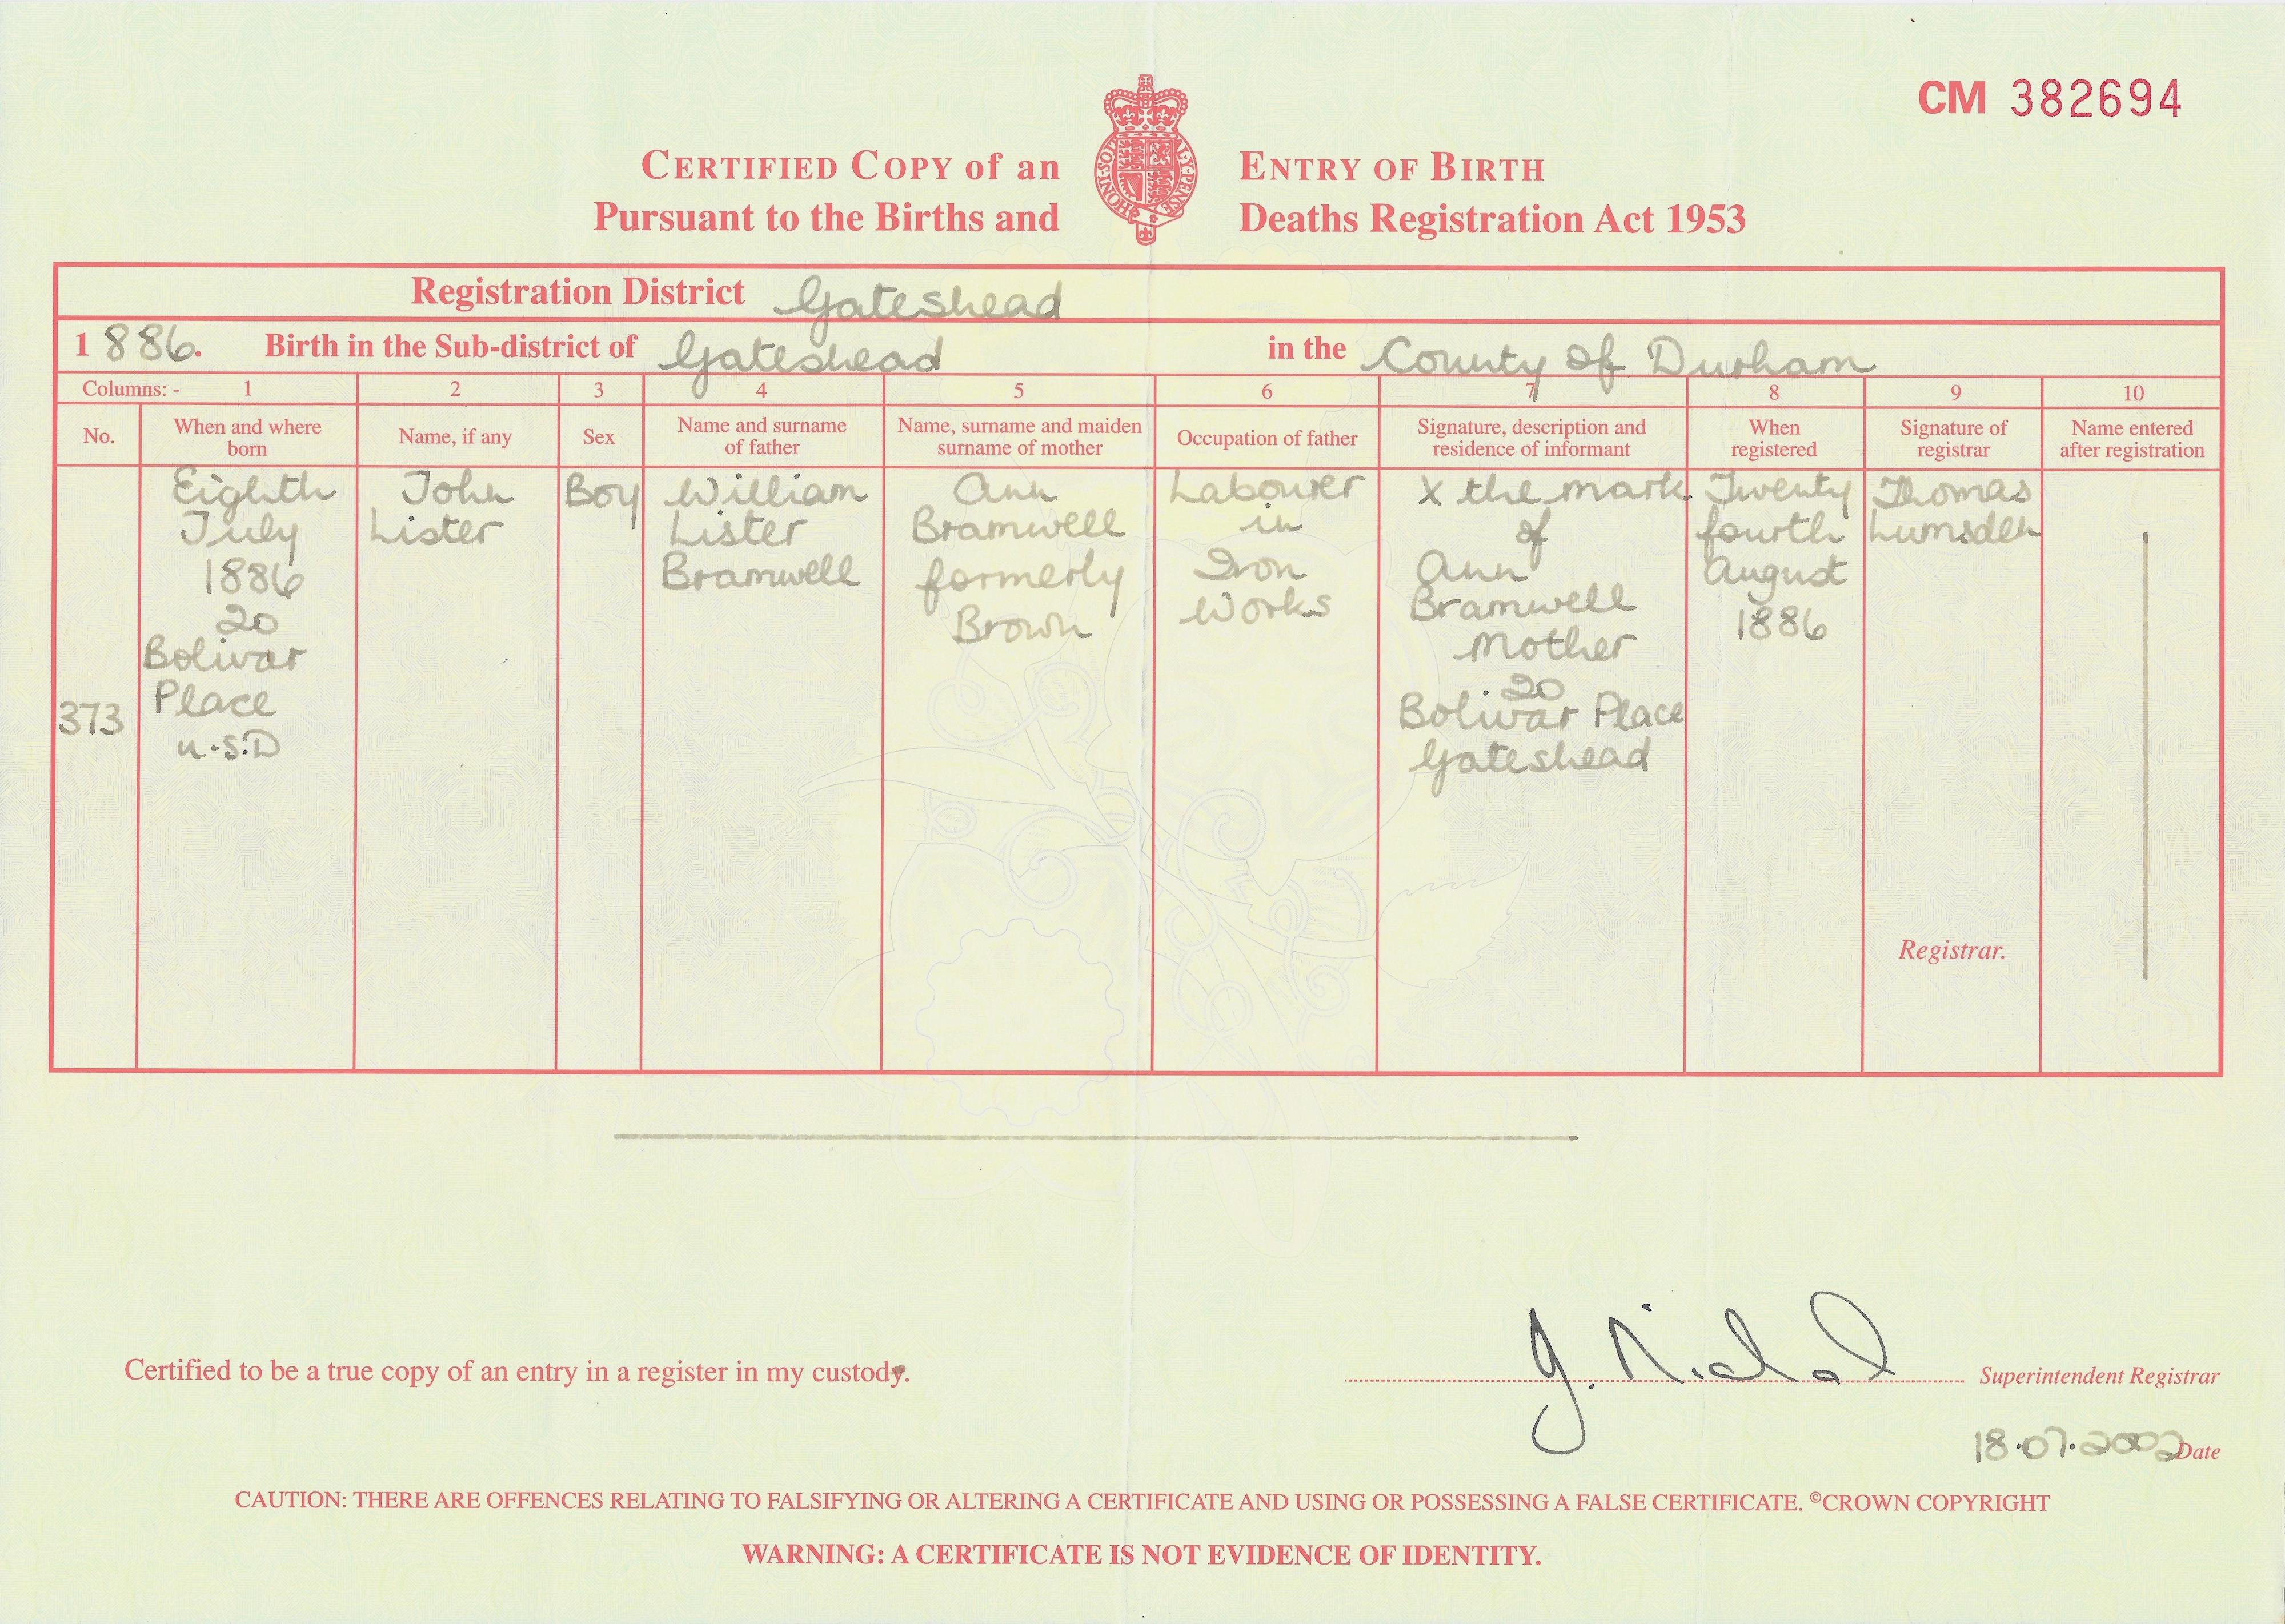 CM 382694
CERTIFIED COPY of an ENTRY OF BIRTH
Pursuant to the Births and Deaths Registration Act 1953
Registration District Gateshead
1886. Birth in the Sub-district of Gateshead in the County of Durham
Columns: - 1 2 3 4 5 6 7 8 9 10
No.
When and where
born
Name, if any
Sex
Name and surname
of father
Name, surname and maiden
surname of mother
Occupation of father
Signature, description and
residence of informant
When
registered
Signature of
registrar
Name entered
after registration
373
Eighth
July
1886
20
Bolivar
Place
u.S.D
John
Lister
Boy
William
Lister
Bramwell
Ann
Bramwell
formerly
Brown
Labourer
in
Iron
Works
X the mark
of
Ann
Bramwell
Mother
20
Bolivar Place
Gateshead
Twenty
fourth
August
1886
Thomas
Lumsden
Registrar.
Certified to be a true copy of an entry in a register in my custody.
Superintendent Registrar
18.07.2002 Date
CAUTION: THERE ARE OFFENCES RELATING TO FALSIFYING OR ALTERING A CERTIFICATE AND USING OR POSSESSING A FALSE CERTIFICATE. ©CROWN COPYRIGHT
WARNING: A CERTIFICATE IS NOT EVIDENCE OF IDENTITY.